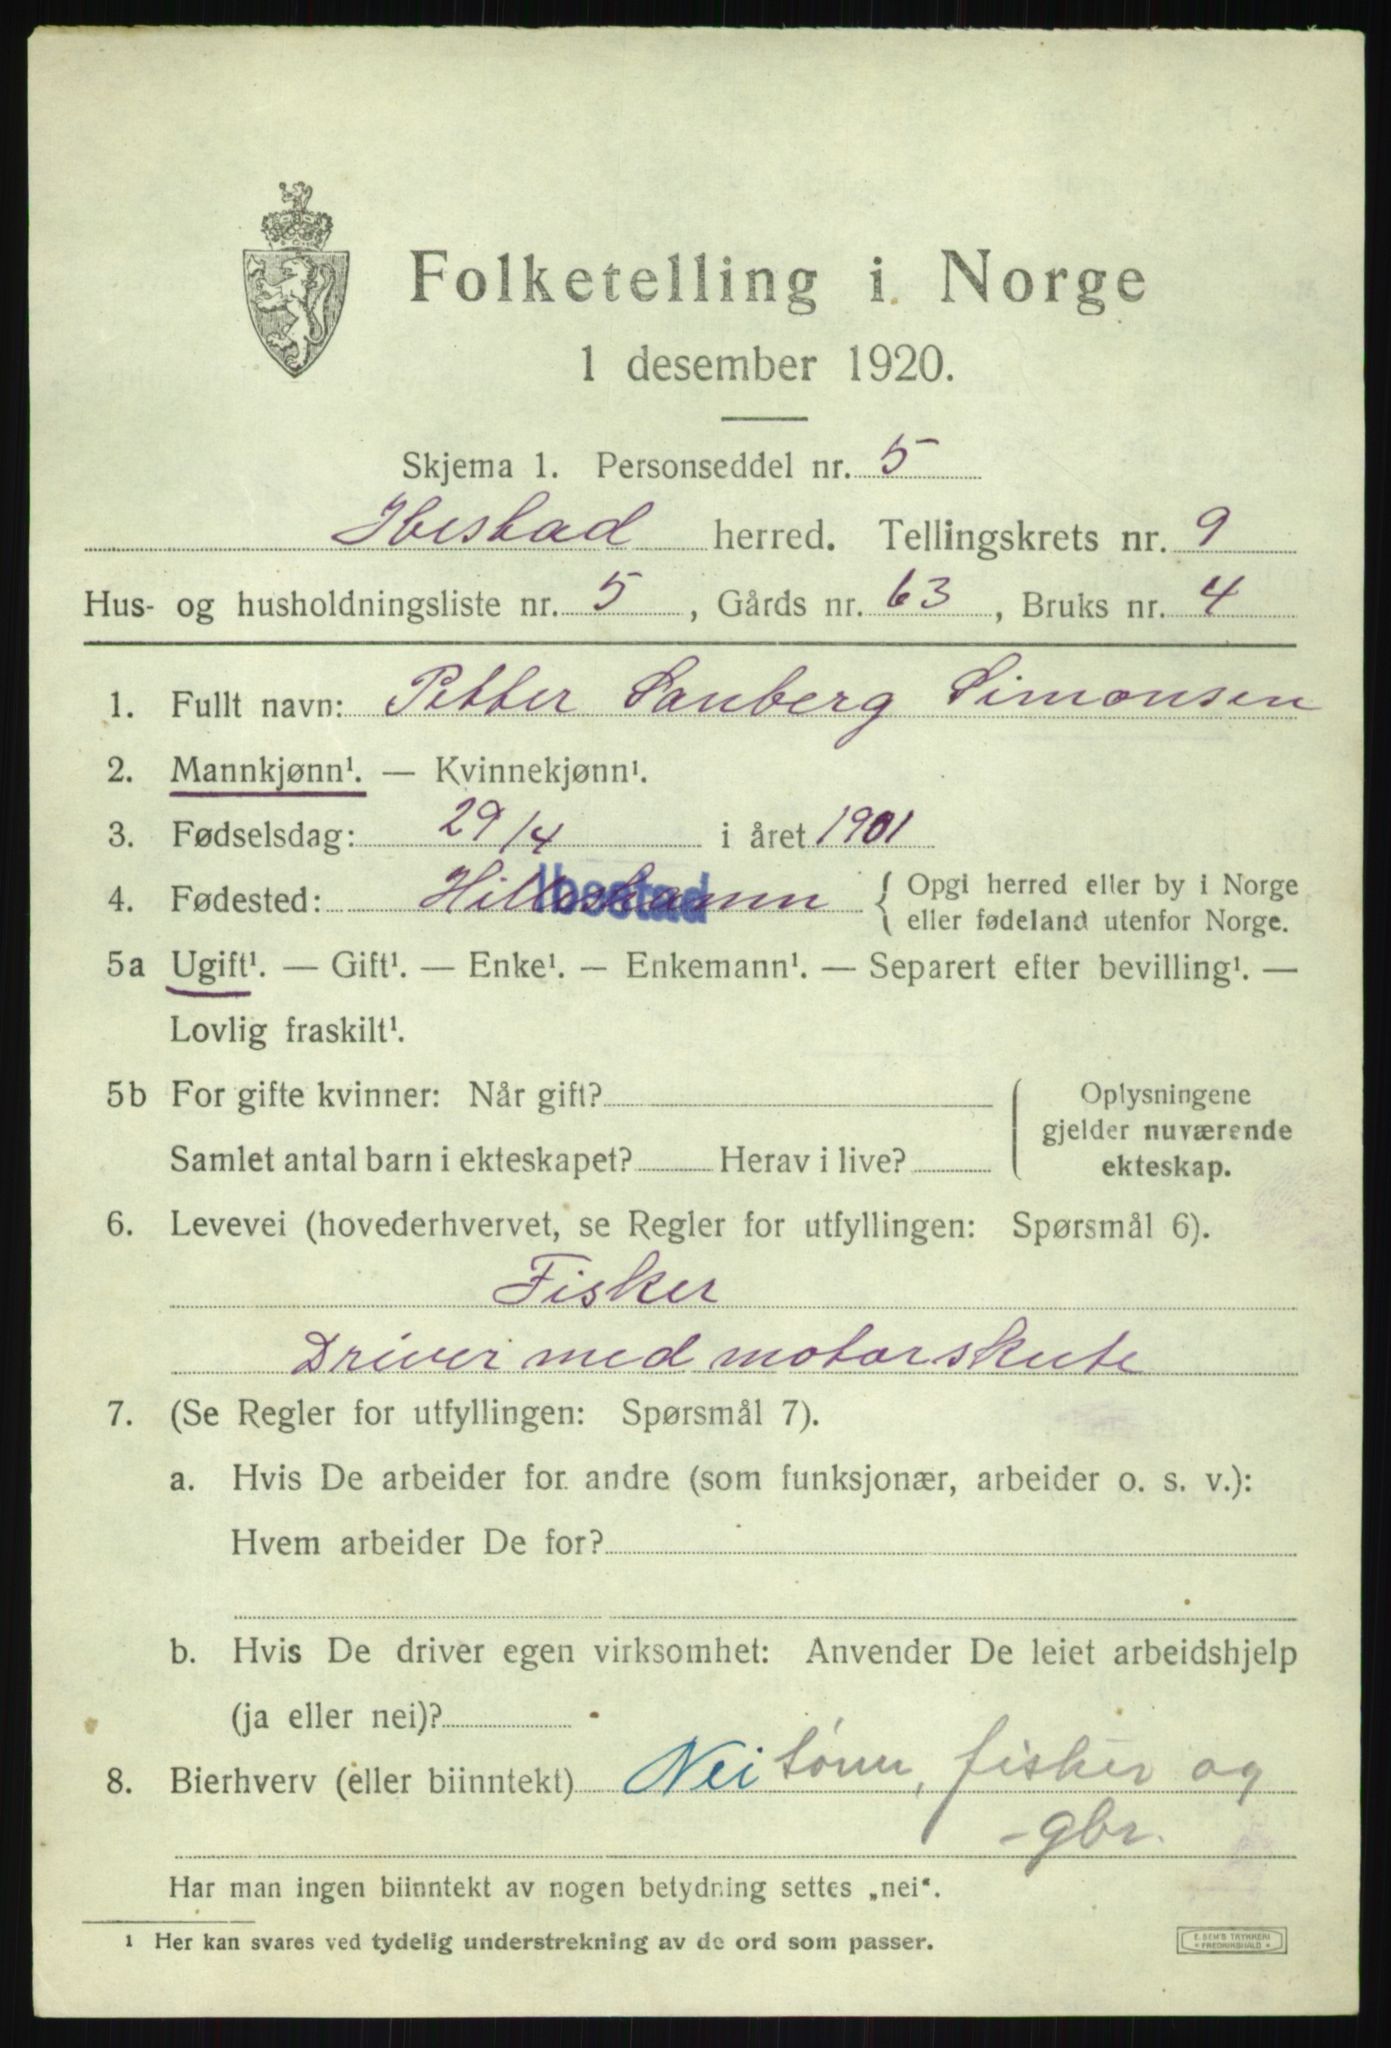 Folketelling i Norge
1 desember 1920.
Skjema 1. Personseddel nr. 5
Ibestad herred. Tellingskrets nr. 9
Hus- og husholdningsliste nr. 5, Gårds nr. 63, Bruks nr. 4
1. Fullt navn: Petter Sanberg Simonsen
2. Mannkjønn¹. — Kvinnekjønn¹.
3. Fødselsdag: 29/4 i året 1901
4. Fødested: Ibestad { Opgi herred eller by i Norge
eller fødeland utenfor Norge.
5a Ugift¹. — Gift¹. — Enke¹. — Enkemann¹. — Separert efter bevilling¹. —
Lovlig fraskilt¹.
5b For gifte kvinner: Når gift?
Samlet antal barn i ekteskapet? Herav i live?
Oplysningene
gjelder nuværende
ekteskap.
6. Levevei (hovederhvervet, se Regler for utfyllingen: Spørsmål 6).
Fisker
Driver med motorskute
7. (Se Regler for utfyllingen: Spørsmål 7).
a. Hvis De arbeider for andre (som funksjonær, arbeider o. s. v.):
Hvem arbeider De for?
b. Hvis De driver egen virksomhet: Anvender De leiet arbeidshjelp
(ja eller nei)?
8. Bierhverv (eller biinntekt) Nei sønn, fisker og
-gbr.
Har man ingen biinntekt av nogen betydning settes „nei“.
¹ Her kan svares ved tydelig understrekning av de ord som passer.
E. SEM'S TRYKKERI
FREDRIKSHALD